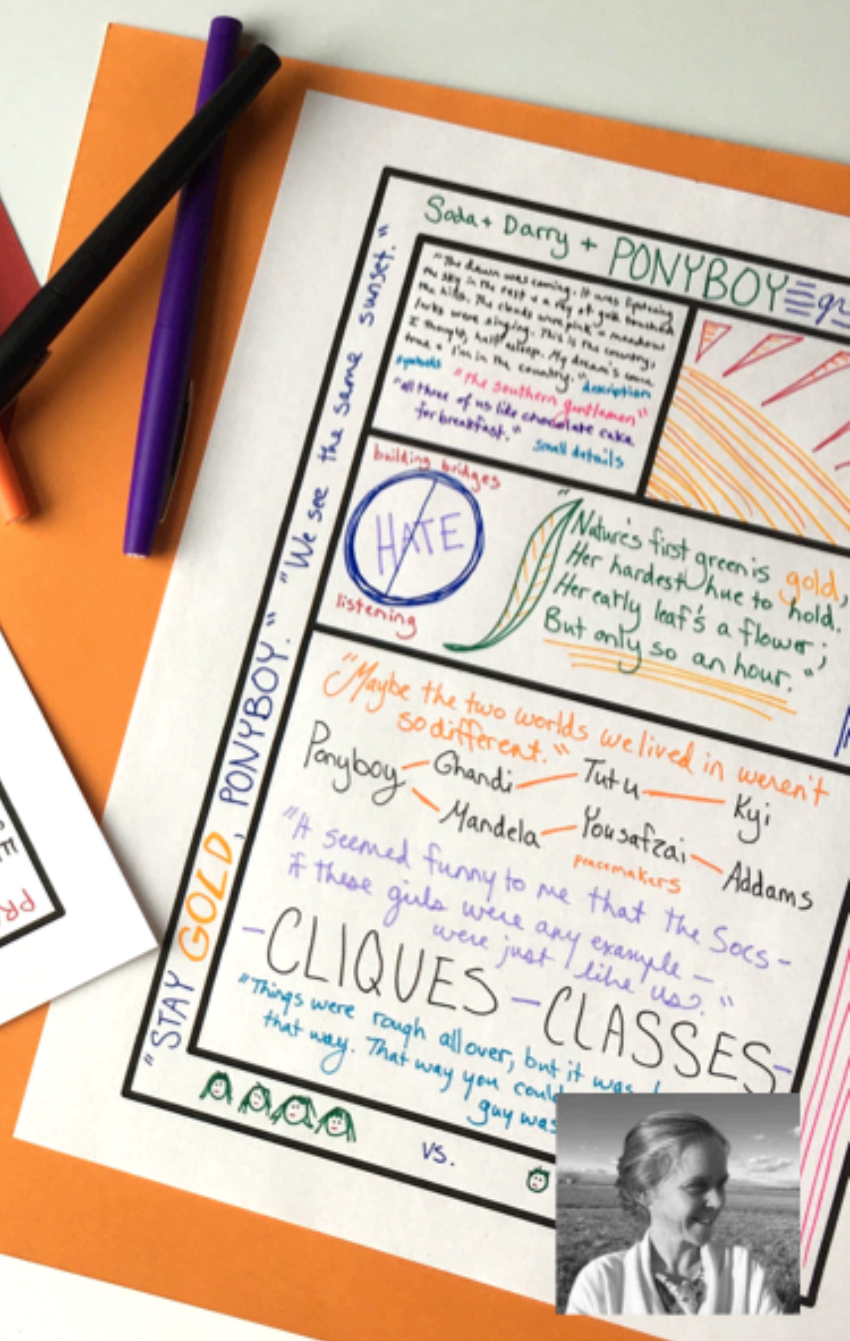 Soda + Darry + PONYBOY
"The dawn was coming. It was lightening
the sky in the east + a ray of gold touched
the hills. The clouds were pink + meadow
larks were singing. This is the country,
I thought, half asleep. My dream's come
true + I'm in the country."
symbols
description
"the southern gentleman"
"all three of us like chocolate cake
for breakfast."
small details
building bridges
HATE
listening
"Nature's first green is gold,
Her hardest hue to hold.
Her early leaf's a flower;
But only so an hour."
"Maybe the two worlds we lived in weren't
so different."
Ponyboy - Ghandi - Tutu - Kyi
Mandela - Yousafzai - Addams
peacemakers
"It seemed funny to me that the Socs -
if these girls were any example -
were just like us."
- CLIQUES - CLASSES -
"Things were rough all over, but it was
that way. That way you could
guy was
"STAY GOLD, PONYBOY." "We see the same sunset."
vs.